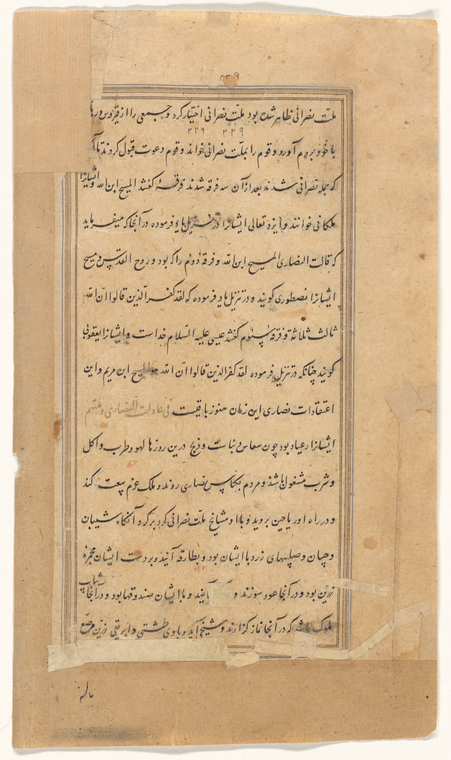 ۳۳۹
ملت نصرانی ظاهر شده بود ملت نصرانی اختیار کرد و جمعی را از قیروس و رها
۲۳۹ ۲۲۶
با خود بروم آورد و قوم را بملت نصرانی خواند و قوم دعوت قبول کردند تا آن
که جمله نصرانی شدند بعد از آن سه فرقه شدند فرقهٔ گفتند المسیح ابن الله و ایشانرا
ملکانی خوانند و ایزد تعالی ایشانرا در تنزیل یاد فرموده در آنجا که میفرماید
که قالت النصاری المسیح ابن الله و فرقه دوم را که بود و روح القدس و مسیح
ایشانرا نسطوری گویند و در تنزیل یاد فرموده که لقد کفر الذین قالوا ان الله
ثالث ثلاثة و فرقه سیوم گفتند عیسی علیه السلام خداست و ایشانرا یعقوبی
گویند چنانکه در تنزیل فرموده لقد کفر الذین قالوا ان الله هو المسیح ابن مریم و این
اعتقادات نصاری این زمان هنوز باقیست فی عادات النصاری و ملتهم
ایشانرا اعیاد بود چون سعانین و نبات و ذبح درین روزها لهو و طرب و اکل
و شرب مشغول باشند و مردم بکنایس نصاری روند و ملک عزم بیعت کند
و در راه او ریاحین بروید و با او مشایخ ملت نصرانی گرد بر گرد و آنگاه شیبان
و رهبان و صلیبهای زر با ایشان بود و بطارقه آیند و بر دست ایشان مجمره
زرین بود و در آنجا عود سوزند و آیند و با ایشان صندوقها بود و در آنجا ثیاب
ملوک باشد که در آنجا نماز گزارند و شیخ آید و با وی طشتی و ابریقی زرین مرصع
ماله